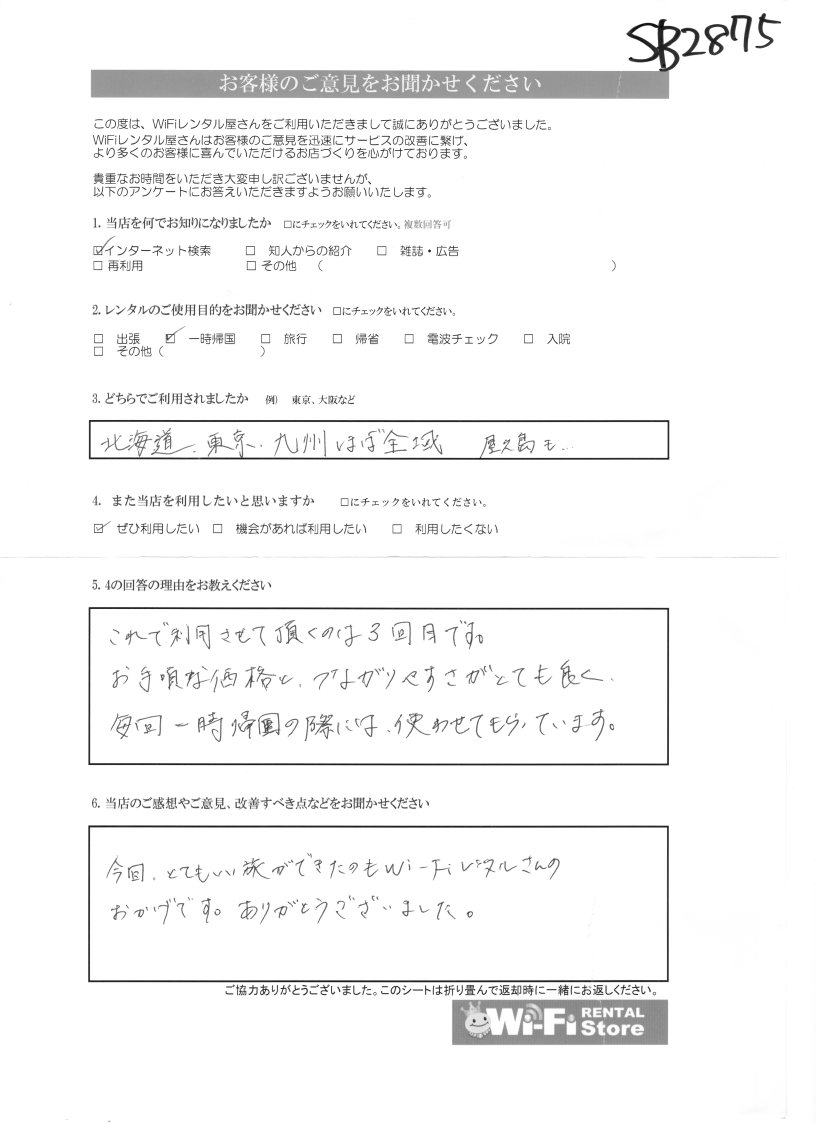 SB2875
お客様のご意見をお聞かせください
この度は、WiFiレンタル屋さんをご利用いただきまして誠にありがとうございました。
WiFiレンタル屋さんはお客様のご意見を迅速にサービスの改善に繋げ、
より多くのお客様に喜んでいただけるお店づくりを心がけております。
貴重なお時間をいただき大変申し訳ございませんが、
以下のアンケートにお答えいただきますようお願いいたします。
1. 当店を何でお知りになりましたか □にチェックをいれてください。複数回答可
☑インターネット検索 □ 知人からの紹介 □ 雑誌・広告
□ 再利用 □ その他 ( )
2. レンタルのご使用目的をお聞かせください □にチェックをいれてください。
□ 出張 ☑ 一時帰国 □ 旅行 □ 帰省 □ 電波チェック □ 入院
□ その他 ( )
3. どちらでご利用されましたか 例) 東京、大阪など
北海道、東京、九州ほぼ全域 屋久島も...
4. また当店を利用したいと思いますか □にチェックをいれてください。
☑ ぜひ利用したい □ 機会があれば利用したい □ 利用したくない
5. 4の回答の理由をお教えください
これで利用させて頂くのは3回目です。
お手頃な価格と、つながりやすさがとても良く、
毎回一時帰国の際には、使わせてもらっています。
6. 当店のご感想やご意見、改善すべき点などをお聞かせください
今回、とてもいい旅ができたのもWi-Fiレンタルさんの
おかげです。ありがとうございました。
ご協力ありがとうございました。このシートは折り畳んで返却時に一緒にお返しください。
Wi-Fi RENTAL
Store